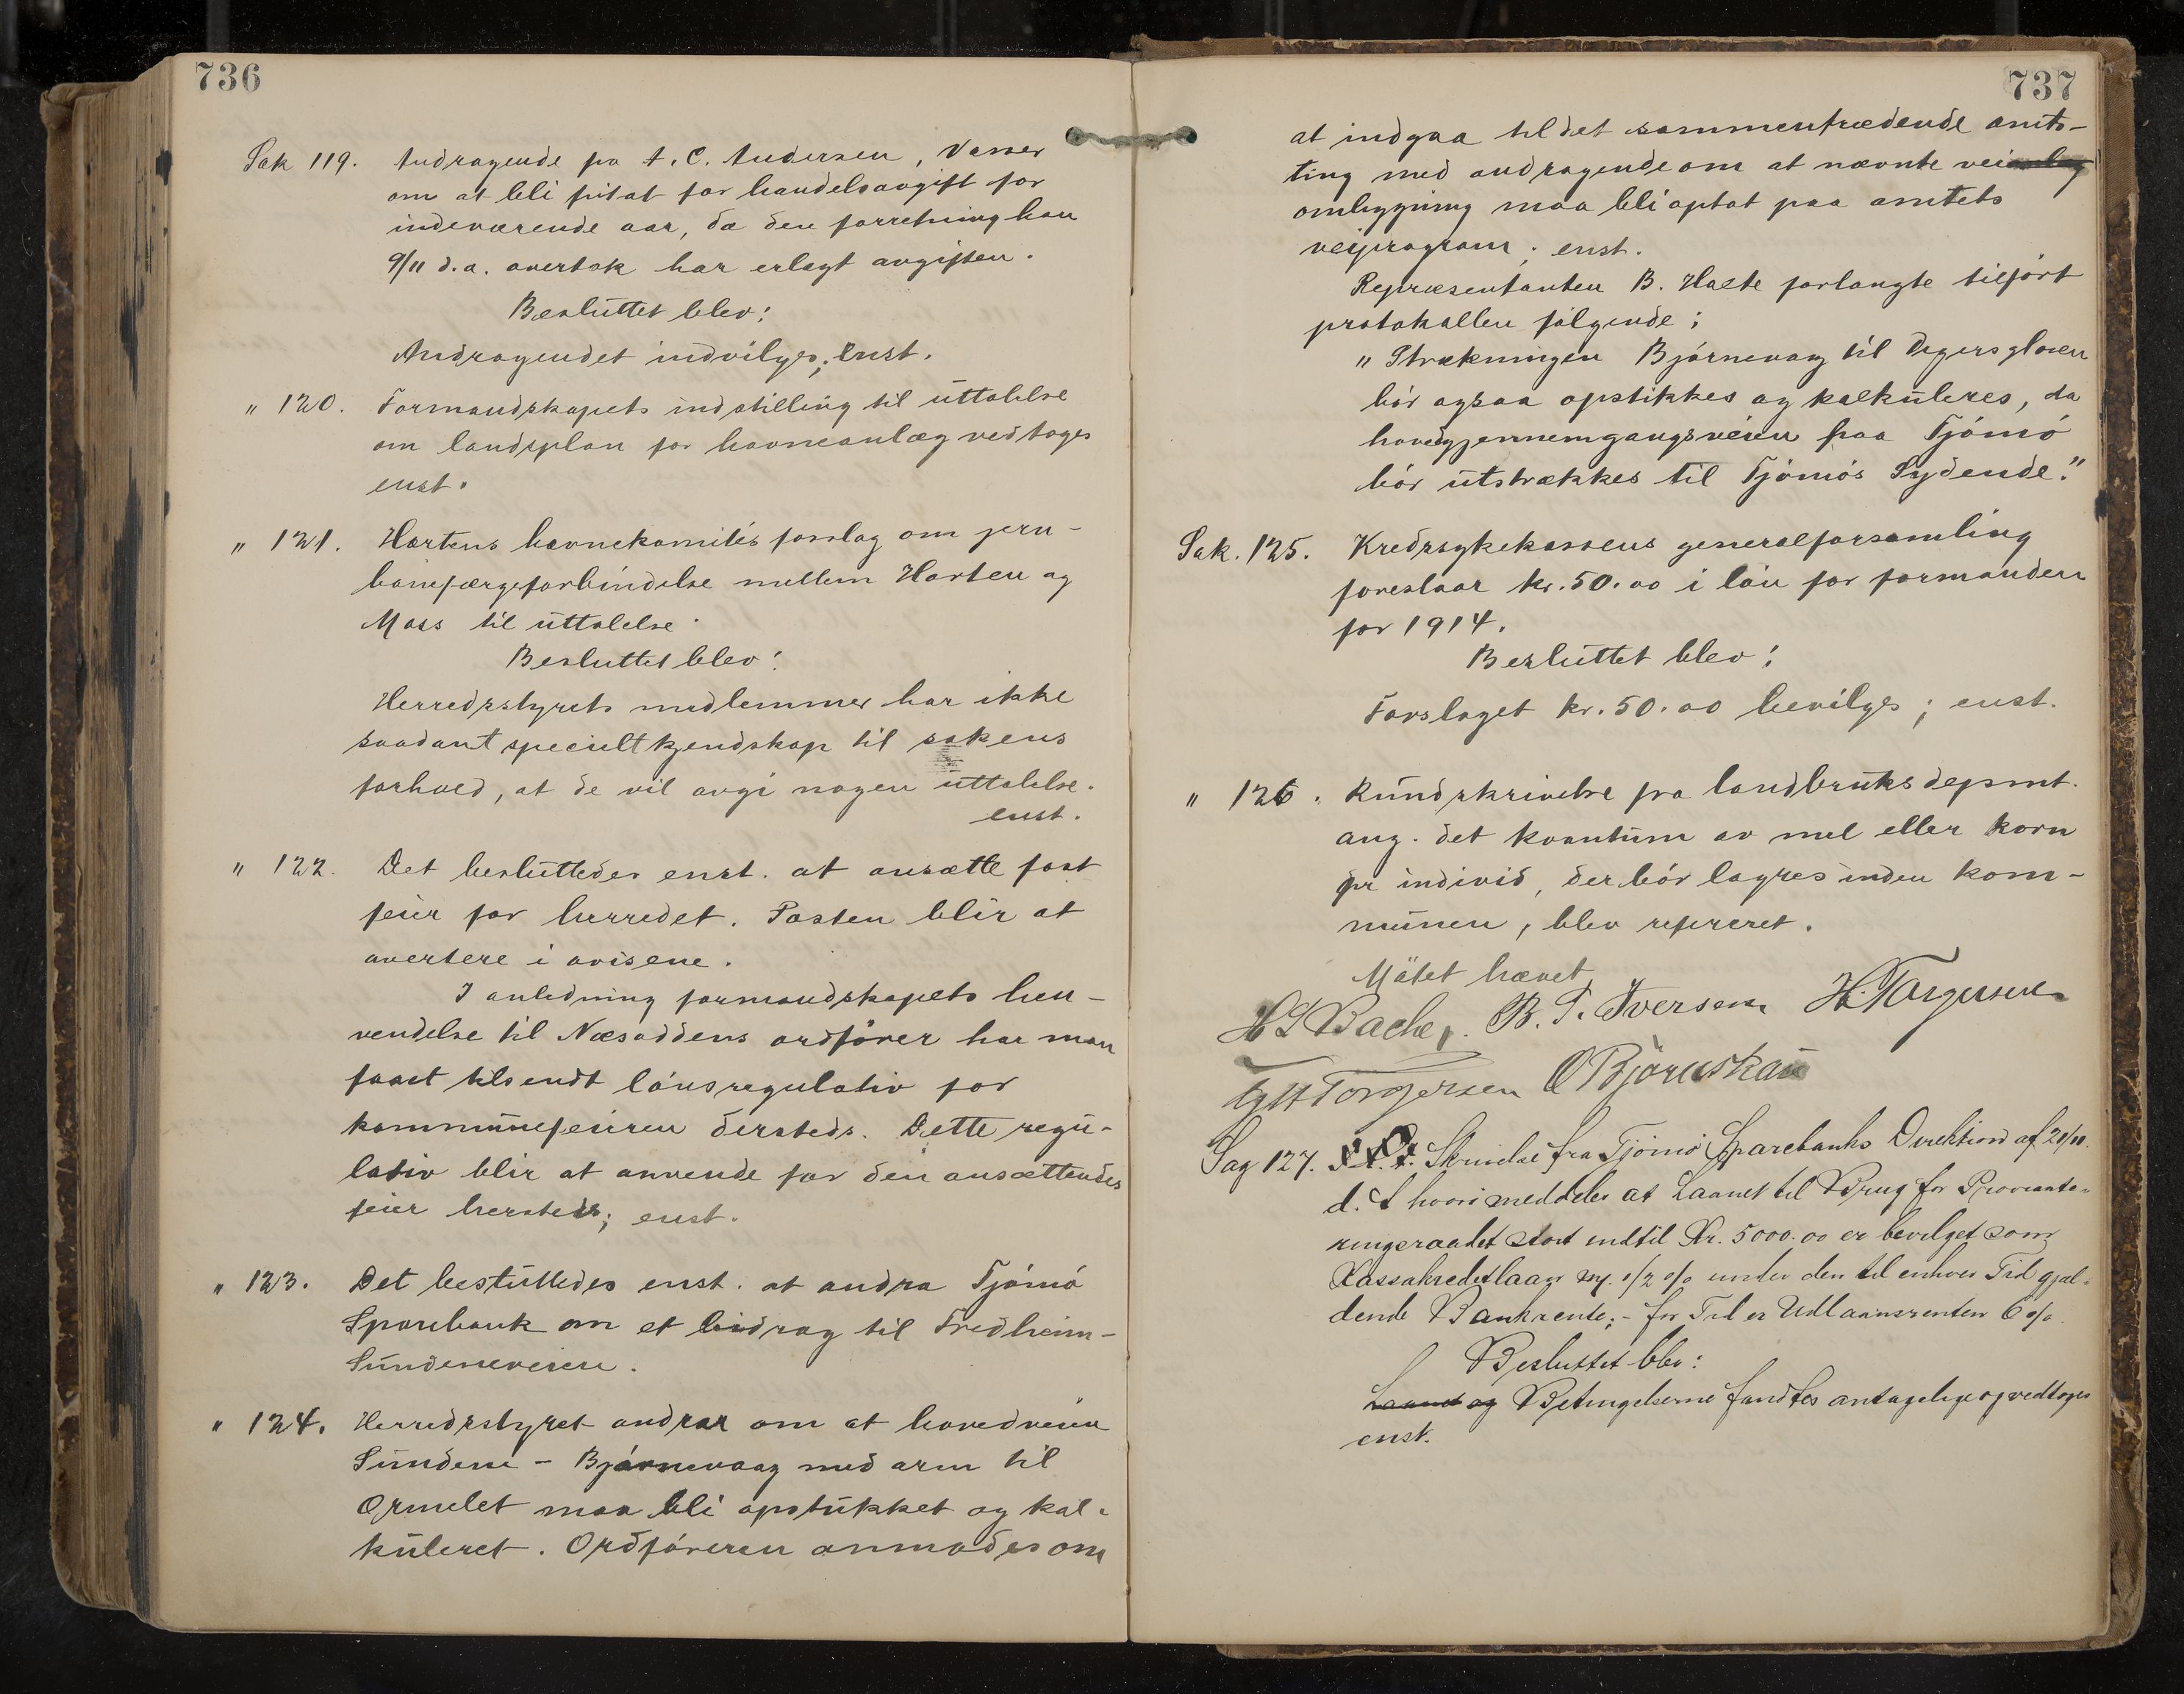 736
Sak 119. Andragende fra A. C. Andersen, Vasser
om at bli fritat for handelsavgift for
indeværende aar, da den forretning han
9/11 d.a. overtok har erlagt avgiften.
Besluttet blev:
Andragendet indvilges; enst.
" 120. Formandskapets indstilling til uttalelse
om landsplan for havneanlæg vedtages
enst.
" 121. Hortens havnekomités forslag om jern-
banefærgeforbindelse mellem Horten og
Moss til uttalelse.
Besluttet blev:
Herredsstyrets medlemmer har ikke
saadant specielt kjendskap til sakens
forhold, at de vil avgi nogen uttalelse.
enst.
" 122. Det besluttedes enst. at ansætte fast
feier for herredet. Posten blir at
avertere i avisene.
I anledning formandskapets hen-
vendelse til Næsoddens ordfører har man
faaet tilsendt lønsregulativ for
kommunefeieren dersteds. Dette regu-
lativ blir at anvende for den ansættendes
feier hersteds; enst.
" 123. Det besluttedes enst. at andra Tjømø
Sparebank om et bidrag til Fredheim-
Sundeneveien.
" 124. Herredsstyret andrar om at hovedveien
Sundene - Bjørnevaag med arm til
Ormelet maa bli opstukket og kal-
kuleret. Ordføreren anmodes om
737
at indgaa til det sammentrædende amts-
ting med andragende om at nævnte vei
omlægning maa bli optat paa amtets
veiprogram; enst.
Repræsentanten B. Holte forlangte tilført
protokollen følgende;
" Strækningen Bjørnevaag til
bør ogsaa opstikkes og kalkuleres, da
hovedgjennemgangsveien paa Tjømø
bør utstrækkes til Tjømøs Sydende."
Sak. 125. Kredssykekassens generalforsamling
foreslaar kr. 50.00 i løn for formanden
for 1914.
Besluttet blev:
Forslaget kr. 50.00 bevilges; enst.
" 126. Rundskrivelse fra landbruksdepmt.
ang. det kvantum av mel eller korn
pr individ, der bør lagres inden kom-
munen, blev refereret.
Møtet hævet
H G Bache. B. T. Iversen. H. Torgersen
H Torgersen O Bjørnskau
Sag 127. Skrivelse fra Tjømø Sparebanks Direktion af 21/11.
d. A hvori meddeles at Laanet til Brug for Proviante-
ringsraadet stort indtil Kr. 5000.00 er bevilget som
Kassakreditlaan 1/2 % under den til enhver Tid gjæl-
dende Bankrente; - for Tid er Udlaansrenten 6 %
Besluttet blev:
Laanet og Betingelserne fandtes antagelige og vedtoges
enst.